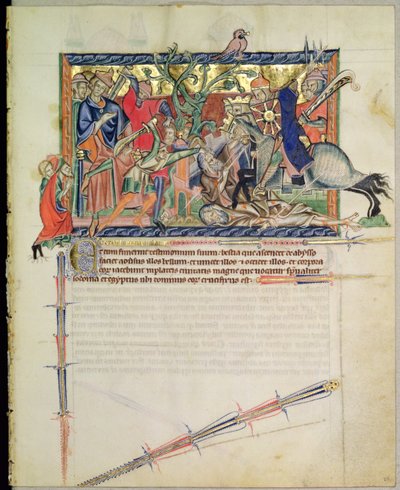 Et cum finierint testimonium suum: bestia que ascendet de abysso
faciet adversus illos bellum. et vincet illos. et occidet illos. et corpora
eor iacebunt in plateis civitatis magne que vocatur spiritualiter
sodoma et egyptus ubi dominus eor crucifixus est